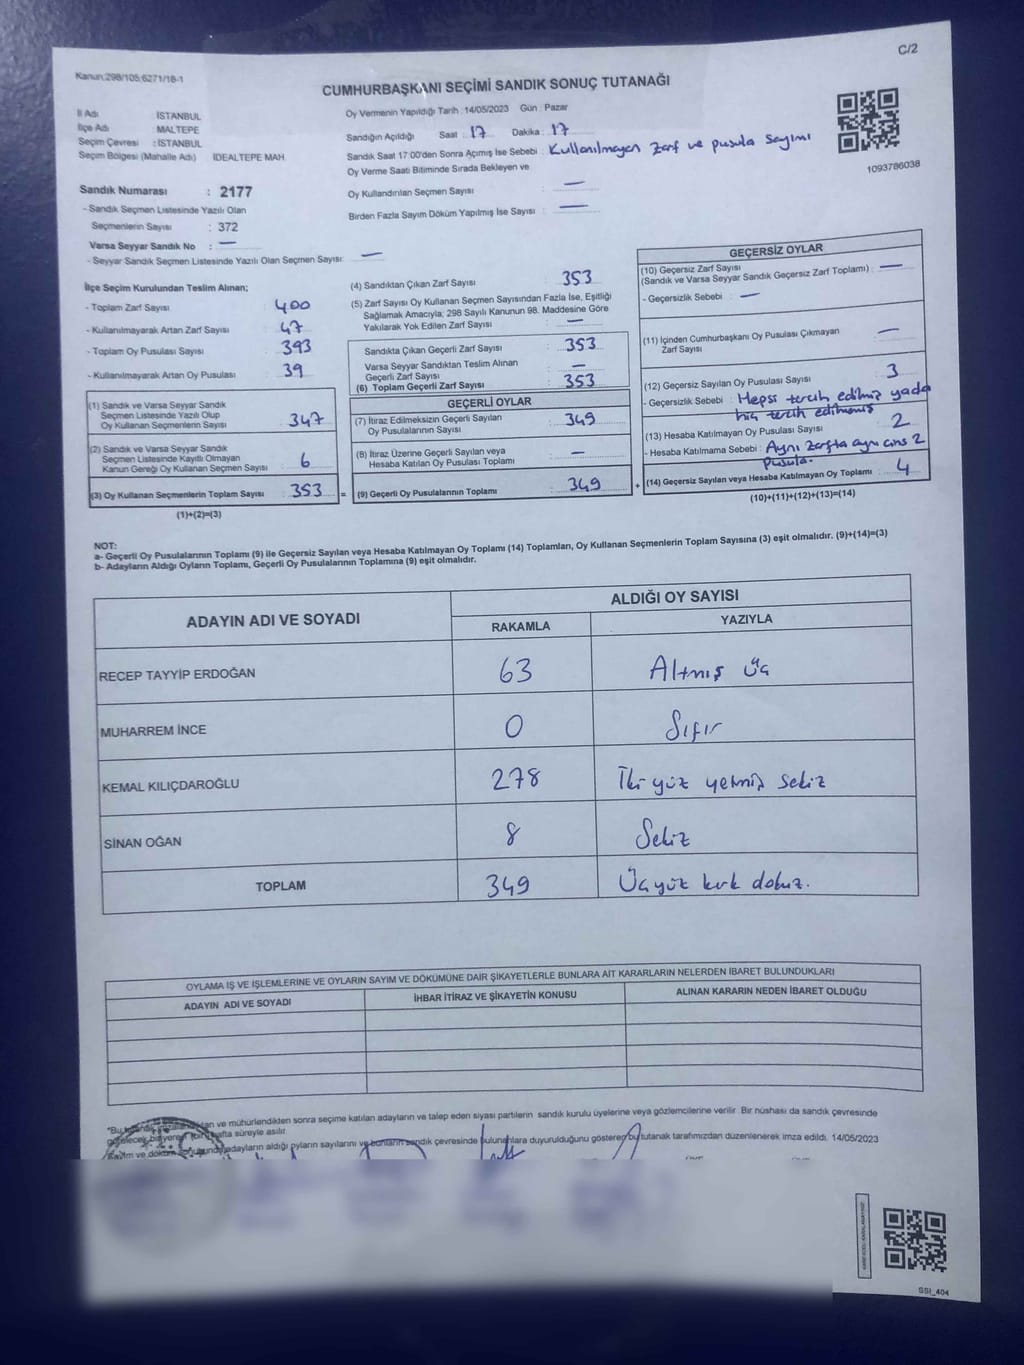 C/2
Kanun:298/105;6271/18-1
CUMHURBAŞKANI SEÇİMİ SANDIK SONUÇ TUTANAĞI
İl Adı : İSTANBUL
İlçe Adı : MALTEPE
Seçim Çevresi : İSTANBUL
Seçim Bölgesi (Mahalle Adı) İDEALTEPE MAH.
Sandık Numarası : 2177
- Sandık Seçmen Listesinde Yazılı Olan
Seçmenlerin Sayısı : 372
Varsa Seyyar Sandık No : —
- Seyyar Sandık Seçmen Listesinde Yazılı Olan Seçmen Sayısı: —
Oy Vermenin Yapıldığı Tarih : 14/05/2023 Gün : Pazar
Sandığın Açıldığı Saat : 17 Dakika : 17
Sandık Saat 17:00'den Sonra Açımış İse Sebebi : Kullanılmayan zarf ve pusula sayımı
Oy Verme Saati Bitiminde Sırada Bekleyen ve
Oy Kullandırılan Seçmen Sayısı : —
Birden Fazla Sayım Döküm Yapılmış İse Sayısı : —
1093786038
İlçe Seçim Kurulundan Teslim Alınan;
- Toplam Zarf Sayısı : 400
- Kullanılmayarak Artan Zarf Sayısı : 47
- Toplam Oy Pusulası Sayısı : 393
- Kullanılmayarak Artan Oy Pusulası : 39
(1) Sandık ve Varsa Seyyar Sandık
Seçmen Listesinde Yazılı Olup
Oy Kullanan Seçmenlerin Sayısı : 347
(2) Sandık ve Varsa Seyyar Sandık
Seçmen Listesinde Kayıtlı Olmayan
Kanun Gereği Oy Kullanan Seçmen Sayısı : 6
(3) Oy Kullanan Seçmenlerin Toplam Sayısı : 353 =
(1)+(2)=(3)
(4) Sandıktan Çıkan Zarf Sayısı : 353
(5) Zarf Sayısı Oy Kullanan Seçmen Sayısından Fazla İse, Eşitliği
Sağlamak Amacıyla; 298 Sayılı Kanunun 98. Maddesine Göre
Yakılarak Yok Edilen Zarf Sayısı : —
Sandıkta Çıkan Geçerli Zarf Sayısı : 353
Varsa Seyyar Sandıktan Teslim Alınan
Geçerli Zarf Sayısı : —
(6) Toplam Geçerli Zarf Sayısı : 353
GEÇERLİ OYLAR
(7) İtiraz Edilmeksizin Geçerli Sayılan
Oy Pusulalarının Sayısı : 349
(8) İtiraz Üzerine Geçerli Sayılan veya
Hesaba Katılan Oy Pusulası Toplamı : —
(9) Geçerli Oy Pusulalarının Toplamı : 349 +
GEÇERSİZ OYLAR
(10) Geçersiz Zarf Sayısı
(Sandık ve Varsa Seyyar Sandık Geçersiz Zarf Toplamı) : —
- Geçersizlik Sebebi : —
(11) İçinden Cumhurbaşkanı Oy Pusulası Çıkmayan
Zarf Sayısı : —
(12) Geçersiz Sayılan Oy Pusulası Sayısı : 3
- Geçersizlik Sebebi : Hepsi tercih edilmiş yada
hiç tercih edilmemiş
(13) Hesaba Katılmayan Oy Pusulası Sayısı : 2
- Hesaba Katılmama Sebebi : Aynı zarfta aynı cins 2
pusula.
(14) Geçersiz Sayılan veya Hesaba Katılmayan Oy Toplamı : 4
(10)+(11)+(12)+(13)=(14)
NOT:
a- Geçerli Oy Pusulalarının Toplamı (9) ile Geçersiz Sayılan veya Hesaba Katılmayan Oy Toplamı (14) Toplamları, Oy Kullanan Seçmenlerin Toplam Sayısına (3) eşit olmalıdır. (9)+(14)=(3)
b- Adayların Aldığı Oyların Toplamı, Geçerli Oy Pusulalarının Toplamına (9) eşit olmalıdır.
ADAYIN ADI VE SOYADI
ALDIĞI OY SAYISI
RAKAMLA YAZIYLA
RECEP TAYYİP ERDOĞAN 63 Altmış üç
MUHARREM İNCE 0 Sıfır
KEMAL KILIÇDAROĞLU 278 İki yüz yetmiş sekiz
SİNAN OĞAN 8 Sekiz
TOPLAM 349 Üçyüz kırk dokuz.
OYLAMA İŞ VE İŞLEMLERİNE VE OYLARIN SAYIM VE DÖKÜMÜNE DAİR ŞİKAYETLERLE BUNLARA AİT KARARLARIN NELERDEN İBARET BULUNDUKLARI
ADAYIN ADI VE SOYADI İHBAR İTİRAZ VE ŞİKAYETİN KONUSU ALINAN KARARIN NEDEN İBARET OLDUĞU
*Bu ve mühürlendikten sonra seçime katılan adayların ve talep eden siyasi partilerin sandık kurulu üyelerine veya gözlemcilerine verilir. Bir nüshası da sandık çevresinde
hafta süreyle asılır.
Sayım ve döküm adayların aldığı oyların sayılarını ve bunların sandık çevresinde bulunanlara duyurulduğunu gösteren bu tutanak tarafımızdan düzenlenerek imza edildi. 14/05/2023
SSI_404